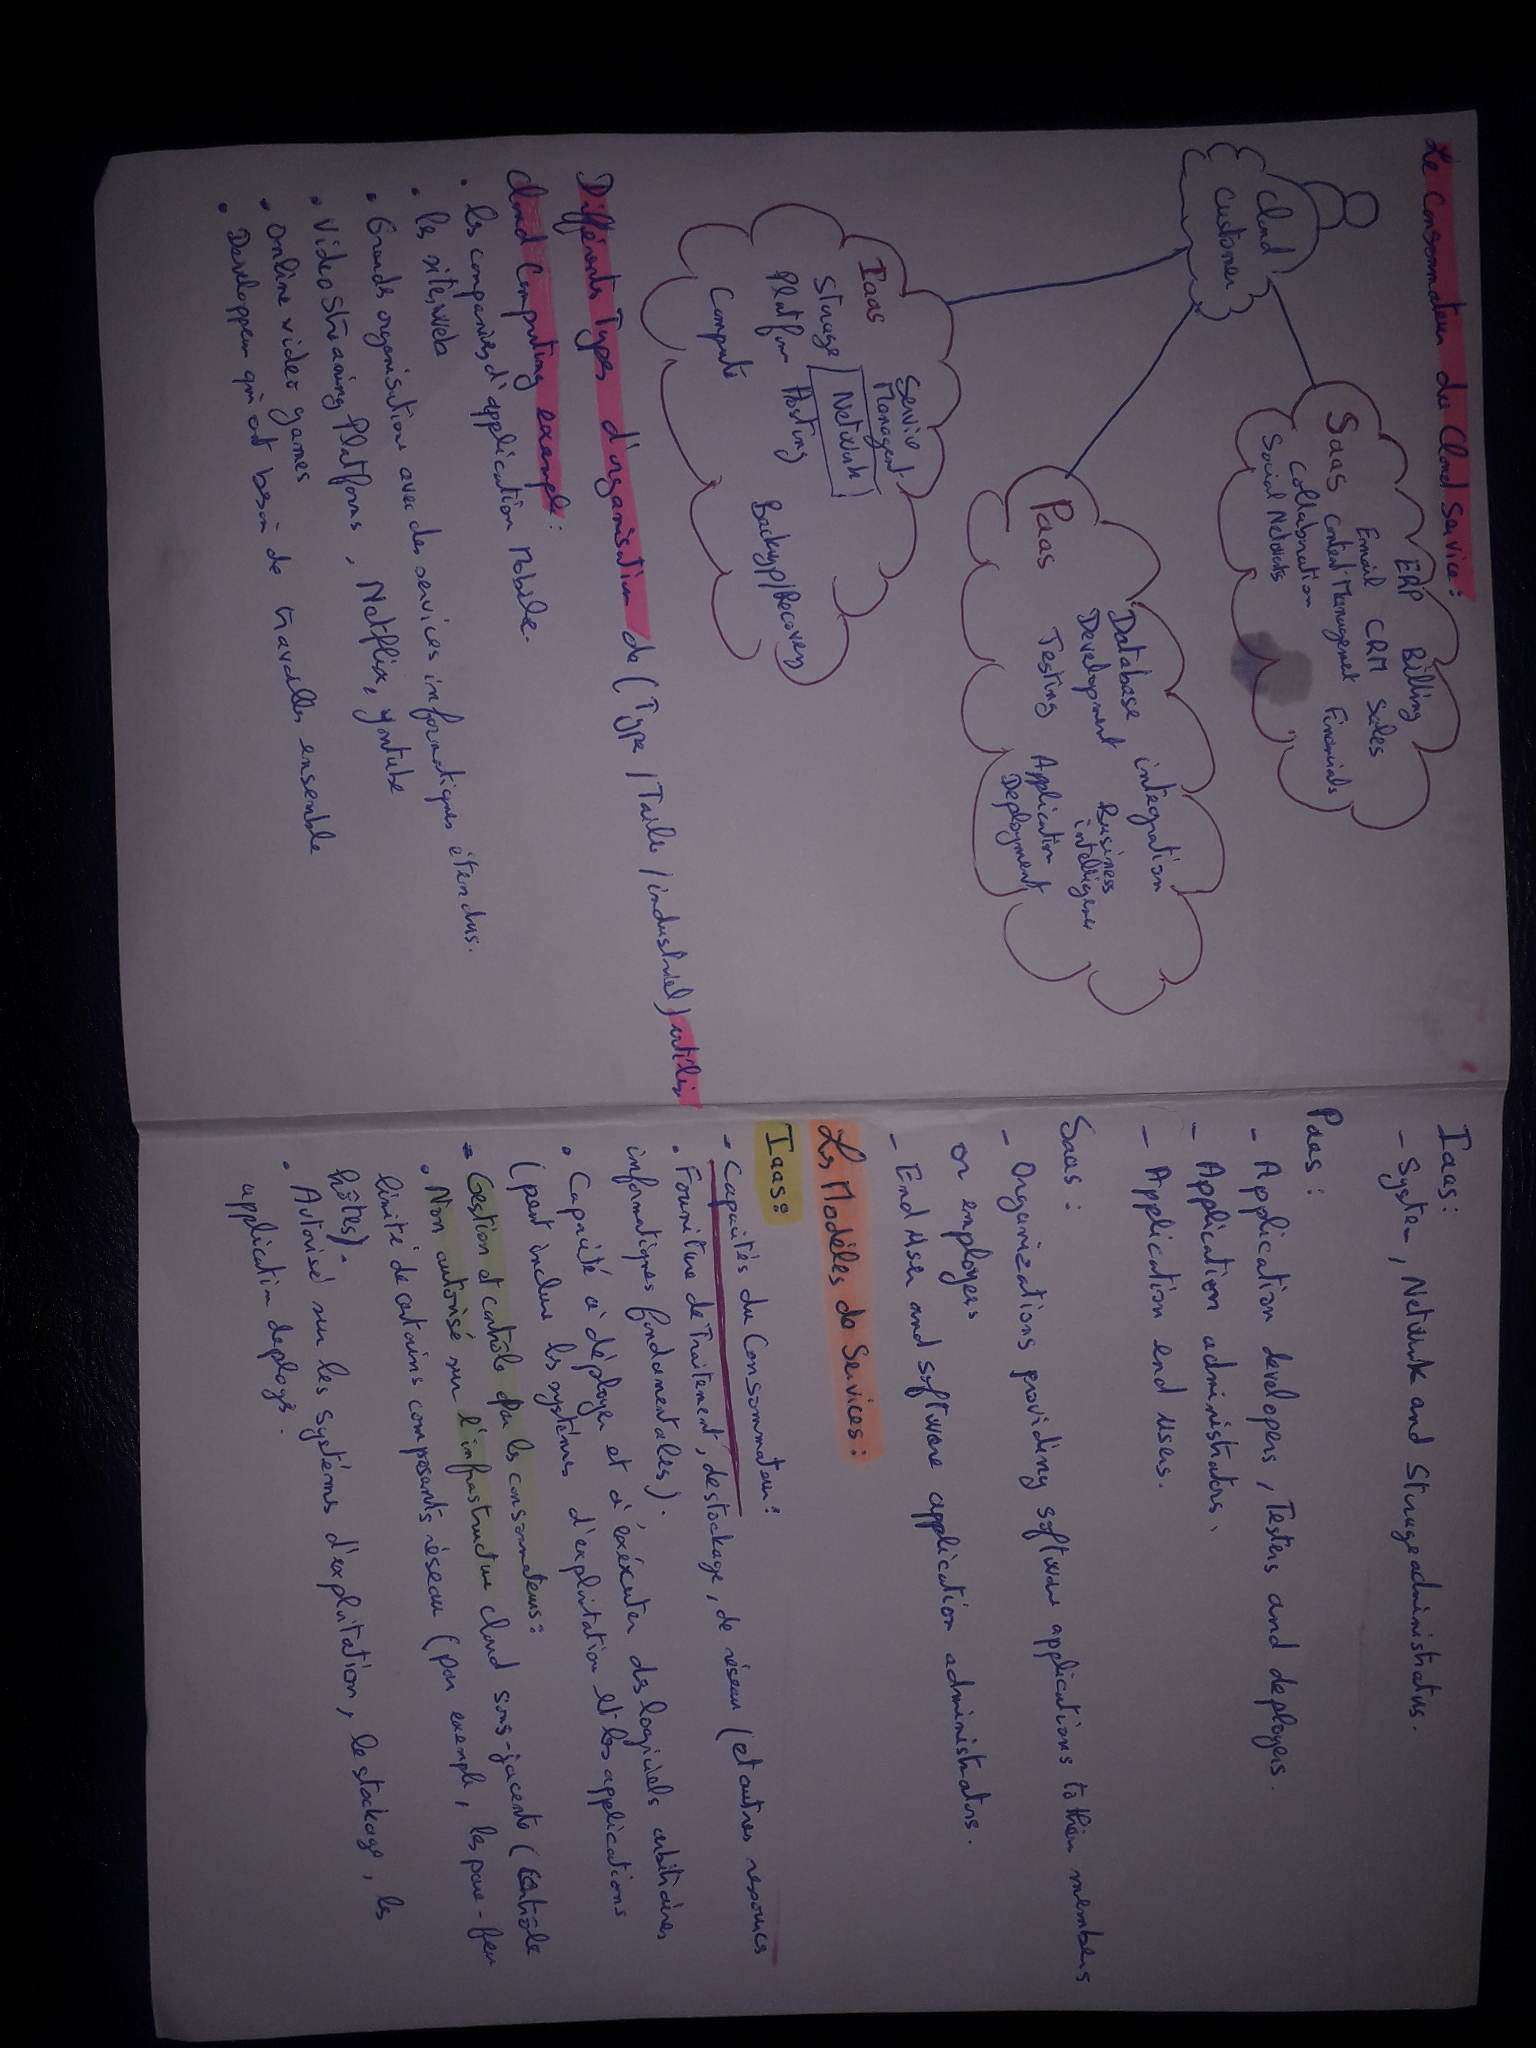 Le Consommateur du Cloud Service :
Cloud
Customer
ERP Billing
Email CRM Sales
Saas Content Management Financials
Collaboration
Social Networks
Database integration
Development Business
intelligence
Paas Testing Application
Deployment
Iaas Service
Managent
Storage Network
Platform Hosting
Backup/Recovery
Compute
Différents Types d'organisation de (Type / Taille / industriel) utilis
Cloud Computing example :
• les companies d'application Mobile.
• les sites web
• Grands organisations avec des services informatiques étendus.
• Video Streaming Platforms, Netflix, youtube
• Online video games
• Developpeur qui ont besoin de travailles ensemble
Iaas :
- System, Network and Storage administrators.
Paas :
- Application developers, Testers and deployers.
- Application administrators.
- Application end users.
Saas :
- Organizations providing software applications to their members
or employers
- End User and software application administrators.
Les Modèles de Services :
Iaas :
- Capacités du Consommateur :
• Fourniture de Traitement, de stockage, de réseau (et autres resources
informatiques fondamentales).
• Capacité à déployer et à éxécuter des logiciels arbitraires
(peut inclure les systémes d'exploitation et les applications
- Gestion et contrôle par les consommateurs :
• Non autorisé sur l'infrastructure cloud sous-jacente (Contrôle
limité de certains composants réseau (par exemple, les pare-feu
hôtes).
• Autorisé sur les systémes d'exploitation, le stockage, les
application deployés.